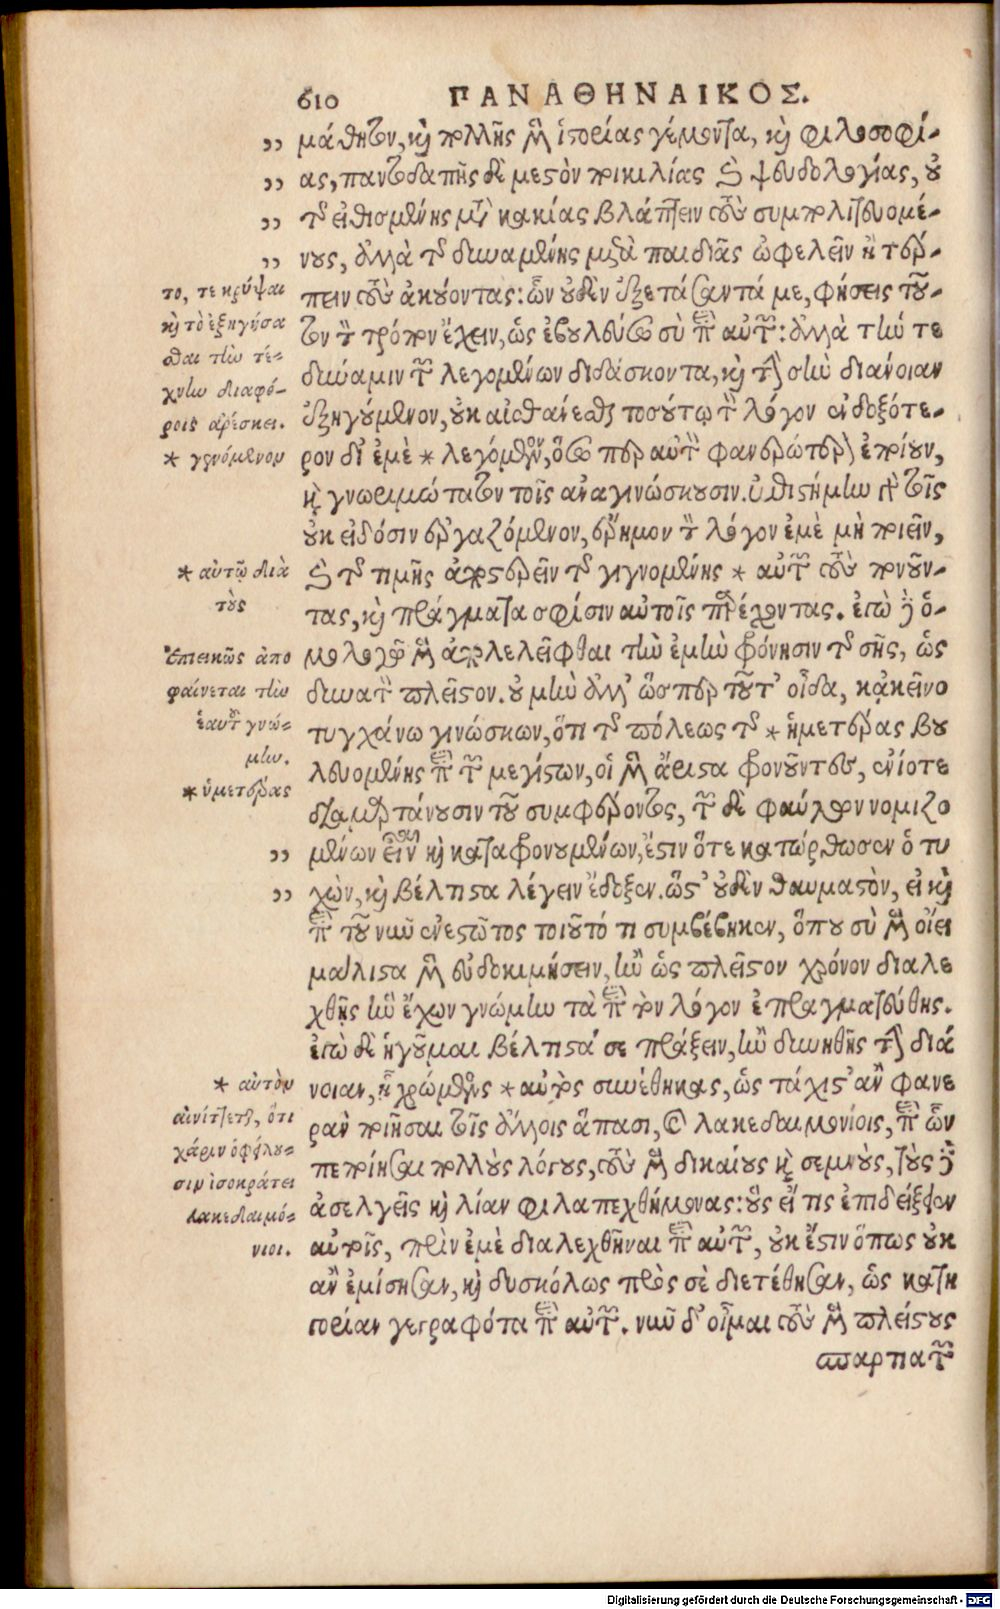 610 ΠΑΝΑΘΗΝΑΙΚΟΣ.
μάθητον, καὶ πολλῆς μὲν ἱστορίας γέμοντα, καὶ φιλοσοφί-
ας, παντοδαπῆς δὲ μεστὸν ποικιλίας καὶ ψευδολογίας, οὐ
τῆς εἰθισμένης μετὰ κακίας βλάπτειν τοὺς συμπολιτευομέ-
νους, ἀλλὰ τῆς δυναμένης μετὰ παιδιᾶς ὠφελεῖν ἢ τέρ-
πειν τοὺς ἀκούοντας: ὧν οὐδὲν ἐξετάσαντά με, φήσεις τοῦ-
τον τὸν τρόπον ἔχειν, ὡς ἐβουλεύσω σὺ περὶ αὐτῶν: ἀλλὰ τήν τε
δύναμιν τῶν λεγομένων διδάσκοντα, καὶ τὴν σὴν διάνοιαν
ἐξηγούμενον, οὐκ αἰσθάνεσθαι τοσούτῳ τὸν λόγον ἐνδοξότε-
ρον δι' ἐμὲ * λεγόμενον, ὅσῳ περ αὐτὸν φανερώτερον ἐποίουν,
καὶ γνωριμώτατον τοῖς ἀναγινώσκουσιν. ἐπιστήμην γὰρ τοῖς
οὐκ εἰδόσιν ἐργαζόμενον, ἔρημον τὸν λόγον ἐμὲ μὴ ποιεῖν,
καὶ τῆς τιμῆς ἀποστερεῖν τῆς γιγνομένης * αὐτῶν τοὺς πονοῦν-
τας, καὶ πράγματα σφίσιν αὐτοῖς παρέχοντας. ἐγὼ δὲ ὁ-
μολογῶ μὲν ἀπολελεῖφθαι τὴν ἐμὴν φρόνησιν τῆς σῆς, ὡς
δυνατὸν πλεῖστον. οὐ μὴν ἀλλ' ὥσπερ τοῦτ' οἶδα, κἀκεῖνο
τυγχάνω γινώσκων, ὅτι τῆς πόλεως τῆς * ἡμετέρας βου
λευομένης περὶ τῶν μεγίστων, οἱ μὲν ἄριστα φρονοῦντες, ἐνίοτε
διαμαρτάνουσιν τοῦ συμφέροντος, τῶν δὲ φαύλων νομιζο
μένων εἶναι καὶ καταφρονουμένων, ἔστιν ὅτε κατώρθωσεν ὁ τυ
χὼν, καὶ βέλτιστα λέγειν ἔδοξεν. ὥστ' οὐδὲν θαυμαστὸν, εἰ καὶ
περὶ τοῦ νῦν ἐνεστῶτος τοιοῦτό τι συμβέβηκεν, ὅπου σὺ μὲν οἴει
μάλιστα μὲν εὐδοκιμήσειν, ἢν ὡς πλεῖστον χρόνον διαλε
χθῇς ἣν ἔχων γνώμην τὰ περὶ τὸν λόγον ἐπραγματεύθης.
ἐγὼ δὲ ἡγοῦμαι βέλτιστά σε πράξειν, ἢν δυνηθῇς τὴν διά
νοιαν, ᾗ χρώμενος * αὐτὸς συνέθηκας, ὡς τάχιστ' ἂν φανε
ρὰν ποιῆσαι τοῖς ἄλλοις ἅπασι, καὶ Λακεδαιμονίοις, περὶ ὧν
πεποίησαι πολλοὺς λόγους, τοὺς μὲν δικαίους καὶ σεμνοὺς, τοὺς δὲ
ἀσελγεῖς καὶ λίαν φιλαπεχθήμονας: οὓς εἴ τις ἐπιδείξειεν
αὐτοῖς, πρὶν ἐμὲ διαλεχθῆναι περὶ αὐτῶν, οὐκ ἔστιν ὅπως οὐκ
ἂν ἐμίσησαν, καὶ δυσκόλως πρὸς σὲ διετέθησαν, ὡς κατη
γορίαν γεγραφότα περὶ αὐτῶν. νῦν δ' οἶμαι τοὺς μὲν πλείστους
σπαρτιατῶν
το, τε κρύψαι
καὶ τὸ ἐξηγήσα
σθαι τὴν τέ-
χνην διαφό-
ροις ἀρέσκει.
* γενόμενον
* αὐτῷ διὰ
τοὺς
Ἐπιεικῶς ἀπο
φαίνεται τὴν
ἑαυτοῦ γνώ-
μην.
* ὑμετέρας
* αὐτὸν
αἰνίττεται, ὅτι
χάριν ὀφείλου-
σιν ἰσοκράτει
λακεδαιμό-
νιοι.
Digitalisierung gefördert durch die Deutsche Forschungsgemeinschaft - DFG